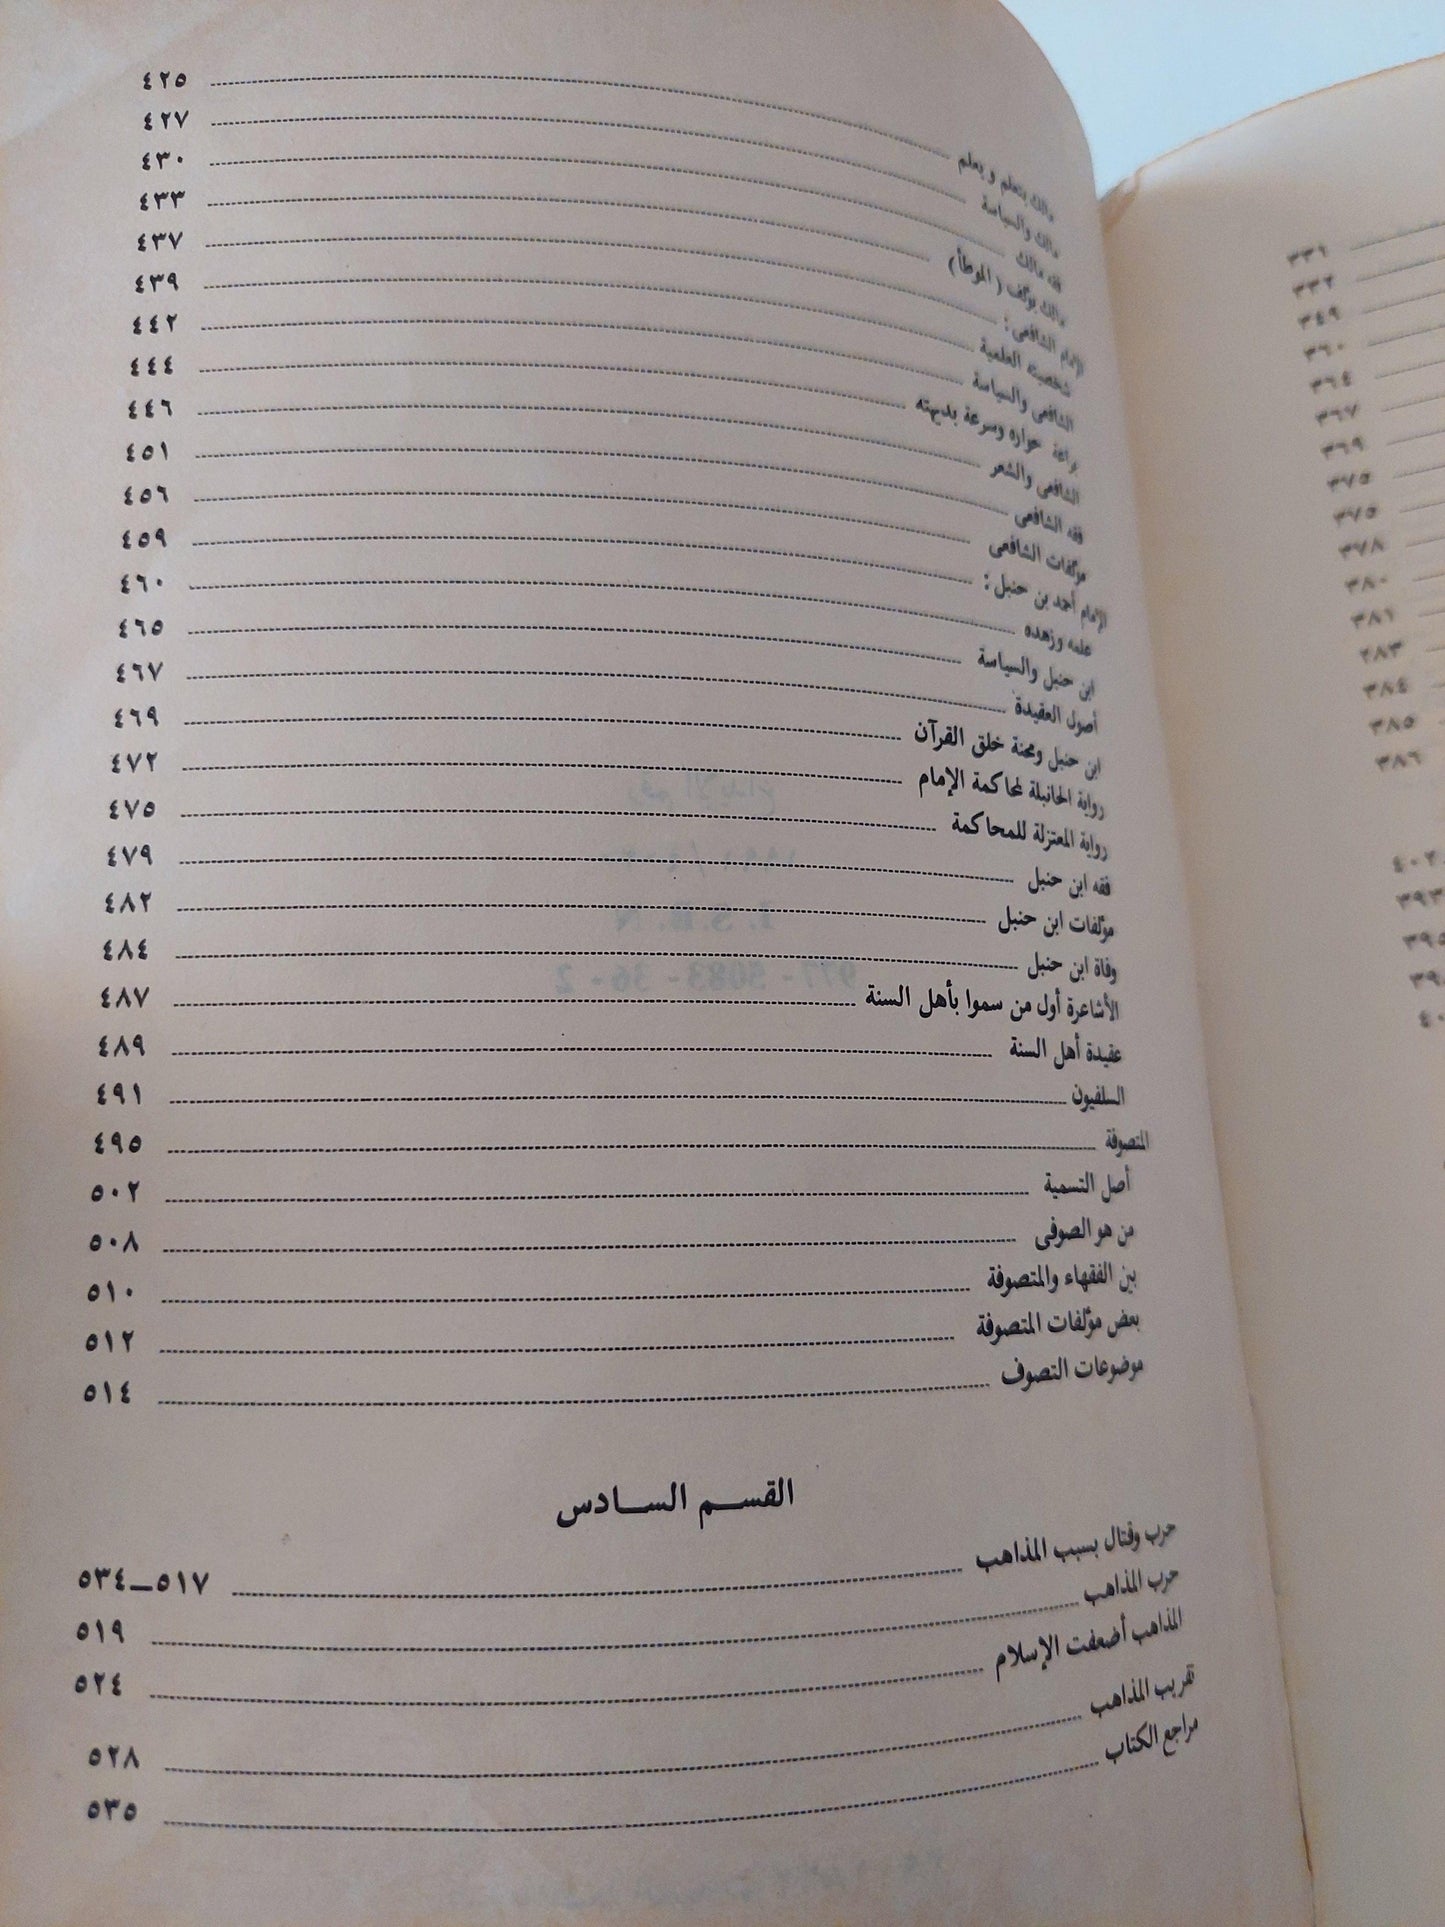 مالك يتعلم و يعلم ٤٢٥
مالك والسياسة ٤٢٧
فقه مالك ٤٣٠
مالك يؤلف ( الموطأ ) ٤٣٣
الإمام الشافعى : ٤٣٧
شخصيته العلمية ٤٣٩
الشافعى والسياسة ٤٤٢
براعة حواره وسرعة بديهته ٤٤٤
الشافعى والشعر ٤٤٦
فقه الشافعى ٤٥١
مؤلفات الشافعى ٤٥٦
الإمام أحمد بن حنبل : ٤٥٩
علمه وزهده ٤٦٠
ابن حنبل والسياسة ٤٦٥
أصول العقيدة ٤٦٧
ابن حنبل ومحنة خلق القرآن ٤٦٩
رواية الحانبلة لمحاكمة الإمام ٤٧٢
رواية المعتزلة للمحاكمة ٤٧٥
فقه ابن حنبل ٤٧٩
مؤلفات ابن حنبل ٤٨٢
وفاة ابن حنبل ٤٨٤
الأشاعرة أول من سموا بأهل السنة ٤٨٧
عقيدة أهل السنة ٤٨٩
السلفيون ٤٩١
المتصوفة ٤٩٥
أصل التسمية ٥٠٢
من هو الصوفى ٥٠٨
بين الفقهاء والمتصوفة ٥١٠
بعض مؤلفات المتصوفة ٥١٢
موضوعات التصوف ٥١٤
القسم السادس
حرب وقتال بسبب المذاهب ٥١٧—٥٣٤
حرب المذاهب ٥١٩
المذاهب أضعفت الإسلام ٥٢٤
تقريب المذاهب ٥٢٨
مراجع الكتاب ٥٣٥
٣٣١
٣٣٢
٣٤٩
٣٦٠
٣٦٤
٣٦٧
٣٦٩
٣٧٥
٣٧٥
٣٧٨
٣٨٠
٣٨١
٣٨٣
٣٨٤
٣٨٥
٣٨٦
٣٩٣